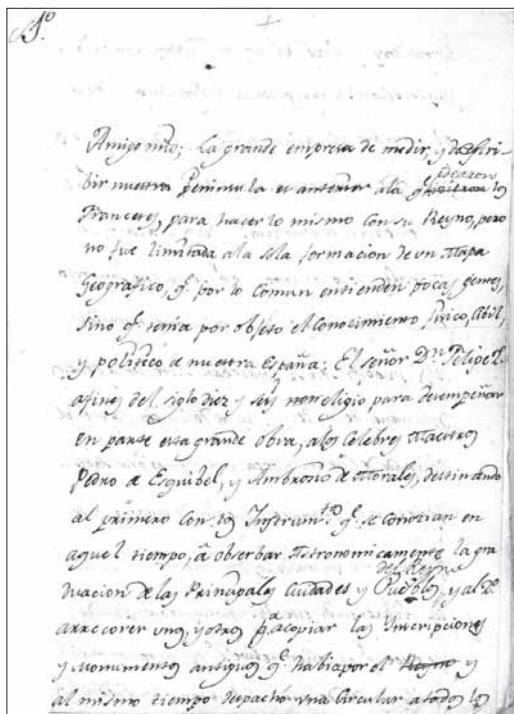 1º
Amigo mío; La grande empresa de medir, y descri-
bir nuestra Peninsula es anterior ala q.e idearon los
Franceses, para hacer lo mismo con su Reyno, pero
no fue limitada ala sola formacion de vn Mapa
Geografico, q.e por lo comun entienden pocas gentes,
sino q.e tenia por objeto el conocimiento fisico, Cibil,
y politico de nuestra España: El señor D.n Felipe 2.º
afines del siglo diez y seis para desempeñar
en parte esta grande obra, alos celebres Maestros
Pedro de Esquibel, y Ambrosio de Morales, destinando
al primero con los Instrum.tos q.e se conocian en
aquel tiempo, â observar Astronomicamente la gra
duacion de las Principales Ciudades y Pueblos del Reyno, y al 2.º
arrecorer vnos, y otros p.a acopiar las Inscripciones
y Monumentos antiguos q.e habia por el Reyno y
al mismo tiempo despachó vna Circular atodos los